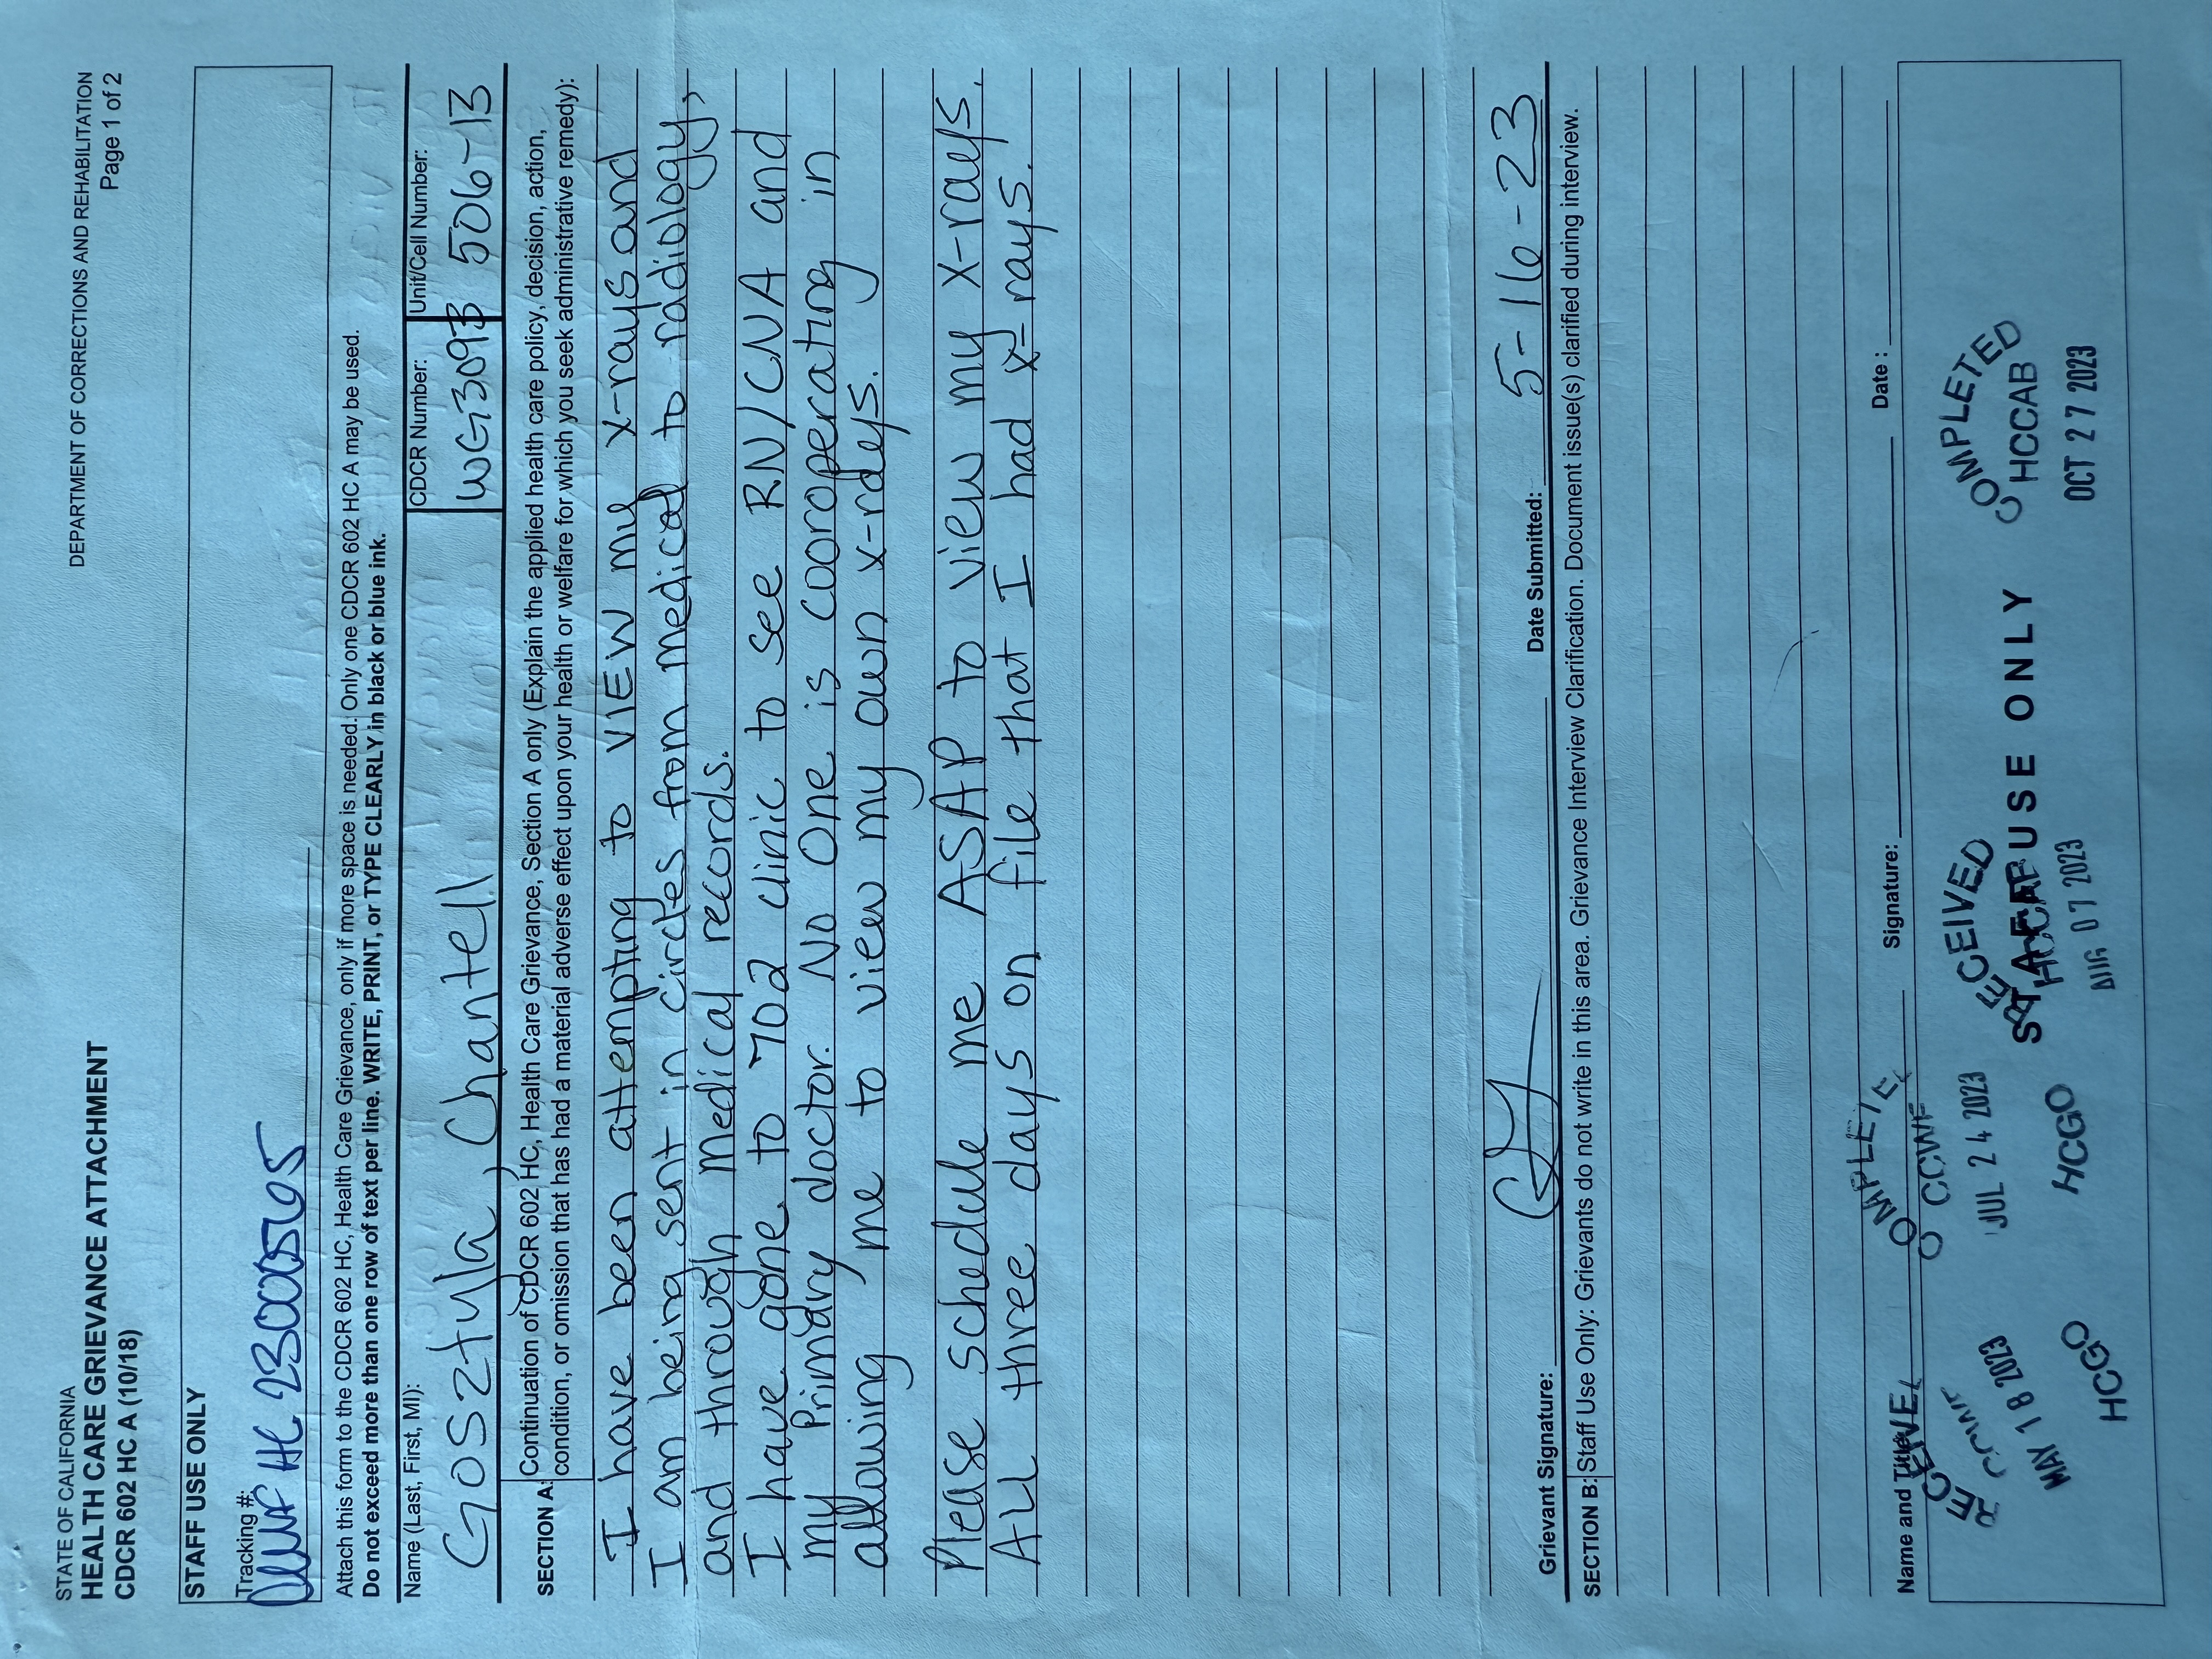 STATE OF CALIFORNIA
HEALTH CARE GRIEVANCE ATTACHMENT
CDCR 602 HC A (10/18)
DEPARTMENT OF CORRECTIONS AND REHABILITATION
Page 1 of 2
STAFF USE ONLY
Tracking #:
HC 23000565
Attach this form to the CDCR 602 HC, Health Care Grievance, only if more space is needed. Only one CDCR 602 HC A may be used.
Do not exceed more than one row of text per line. WRITE, PRINT, or TYPE CLEARLY in black or blue ink.
Name (Last, First, MI):
CDCR Number:
Unit/Cell Number:
Gosztyla, Chantell
WG3093
506-13
SECTION A:
Continuation of CDCR 602 HC, Health Care Grievance, Section A only (Explain the applied health care policy, decision, action,
condition, or omission that has had a material adverse effect upon your health or welfare for which you seek administrative remedy):
I have been attempting to VIEW my x-rays and
I am being sent in circles from medical to radiology,
and through medical records.
I have gone to 702 clinic to see RN/CNA and
my Primary doctor. No One is cooroperating in
allowing me to view my own x-rays.
Please schedule me ASAP to view my x-rays.
ALL three days on file that I had x-rays.
Grievant Signature:
Date Submitted: 5-16-23
SECTION B:
Staff Use Only: Grievants do not write in this area. Grievance Interview Clarification. Document issue(s) clarified during interview.
Name and Title:
Signature:
Date :
RECEIVED
CCWF
MAY 18 2023
HCGO
COMPLETED
CCWF
JUL 24 2023
HCGO
STAFF USE ONLY
RECEIVED
HCCAB
AUG 07 2023
COMPLETED
HCCAB
OCT 27 2023